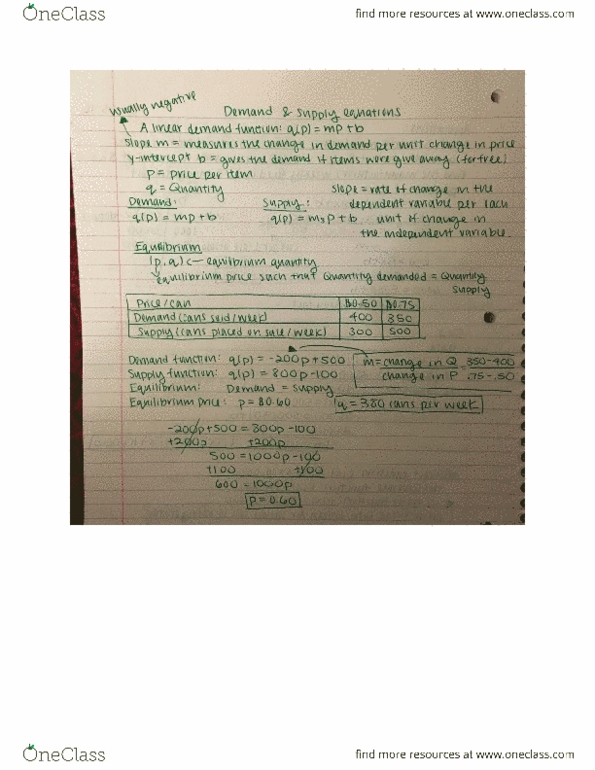 OneClass
find more resources at www.oneclass.com
usually negative
Demand & Supply equations
A linear demand function: q(p) = mp + b
Slope m = measures the change in demand per unit change in price
y-intercept b = gives the demand if items were give away (for free)
p = price per item
q = Quantity
Slope = rate of change in the
dependent variable per each
unit of change in
the independent variable.
Demand:
q(p) = mp + b
Supply:
q(p) = msp + b
Equilibrium
(p, q) ← equilibrium quantity
equilibrium price such that Quantity demanded = Quantity
supply
Price/can $0.50 $0.75
Demand (cans sold/week) 400 350
Supply (cans placed on sale/week) 300 500
Demand function: q(p) = -200p + 500
m = change in Q 350-400
change in P .75-.50
Supply function: q(p) = 800p - 100
Equilibrium: Demand = Supply
Equilibrium price: p = $0.60
q = 380 cans per week
-200p + 500 = 800p - 100
+200p +200p
500 = 1000p - 100
+100 +100
600 = 1000p
p = 0.60
OneClass
find more resources at www.oneclass.com